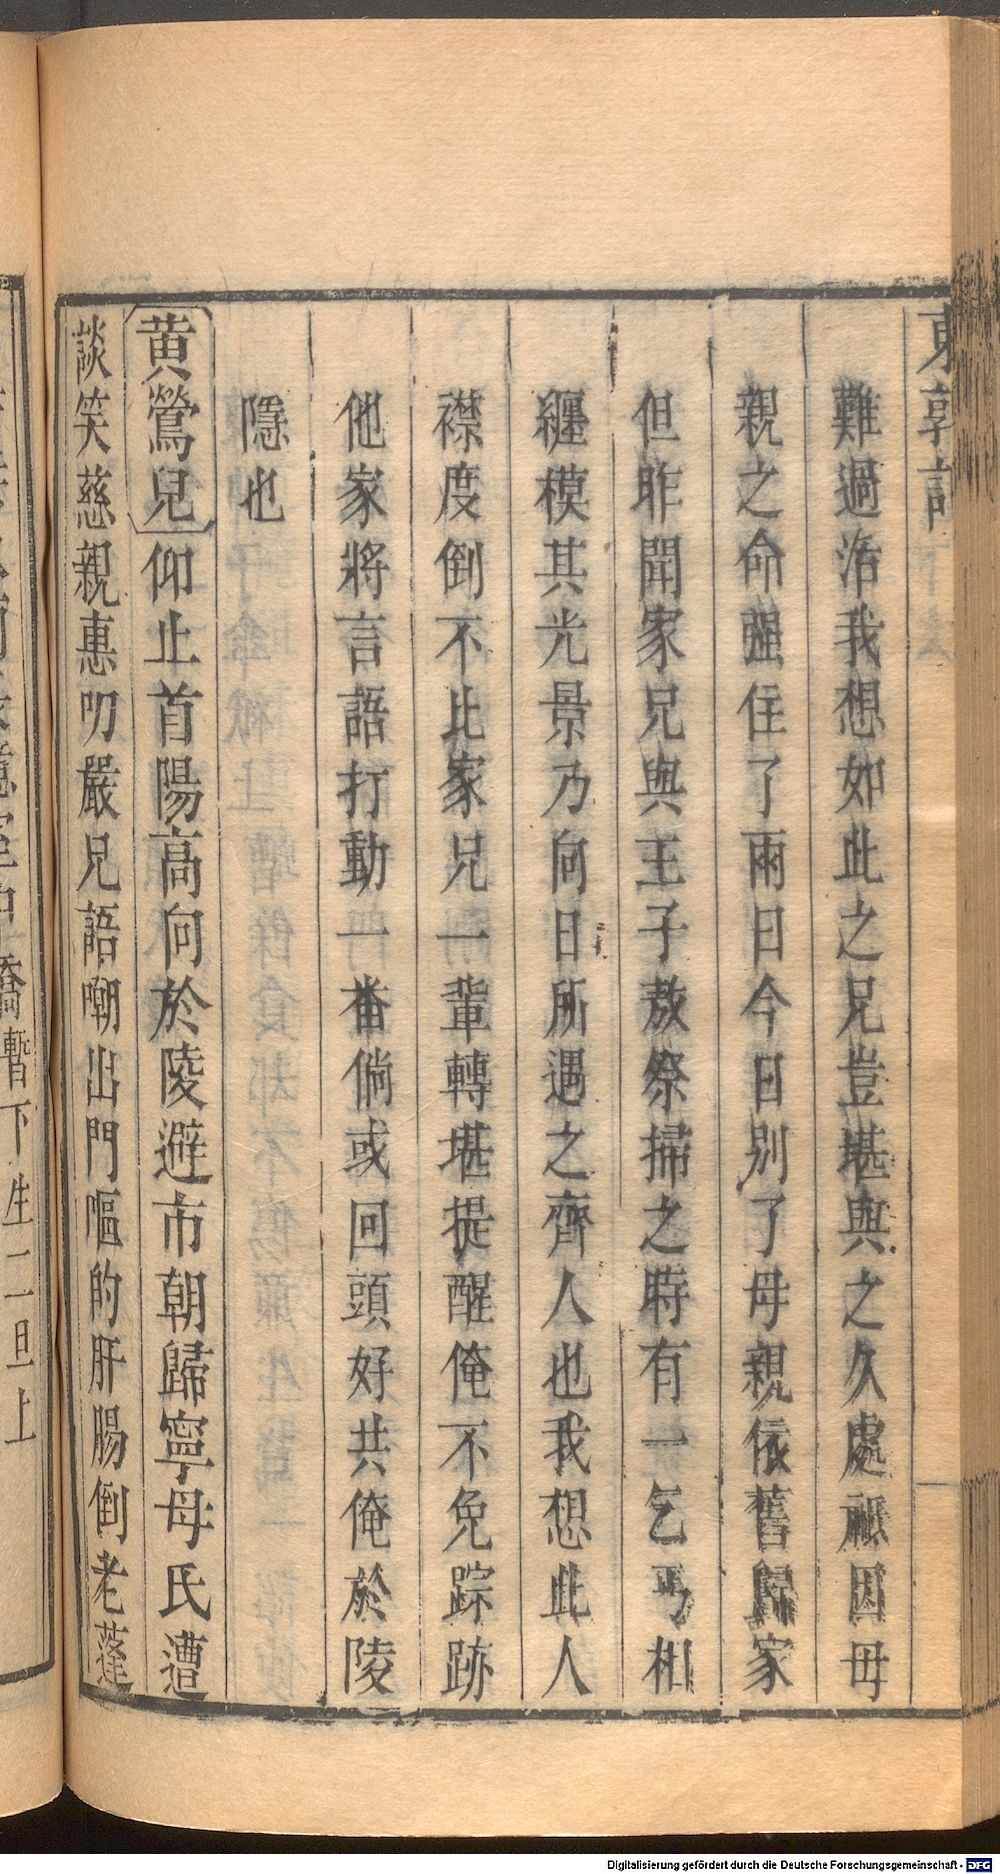 東郭記
難過活我想如此之兄豈堪與之久處祗因母
親之命强住了兩日今日別了母親依舊歸家
但昨聞家兄與王子敖祭掃之時有一乞丐相
纏模其光景乃向日所遇之齊人也我想此人
襟度倒不比家兄一輩轉堪提醒俺不免踪跡
他家將言語打動一番倘或回頭好共俺於陵
隱也
黄鶯兒仰止首陽高向於陵避市朝歸寧母氏遭
談笑慈親惠叨嚴兄語嘲出門嘔的肝腸倒老蓬
暫下生二旦上
Digitalisierung gefördert durch die Deutsche Forschungsgemeinschaft - DFG